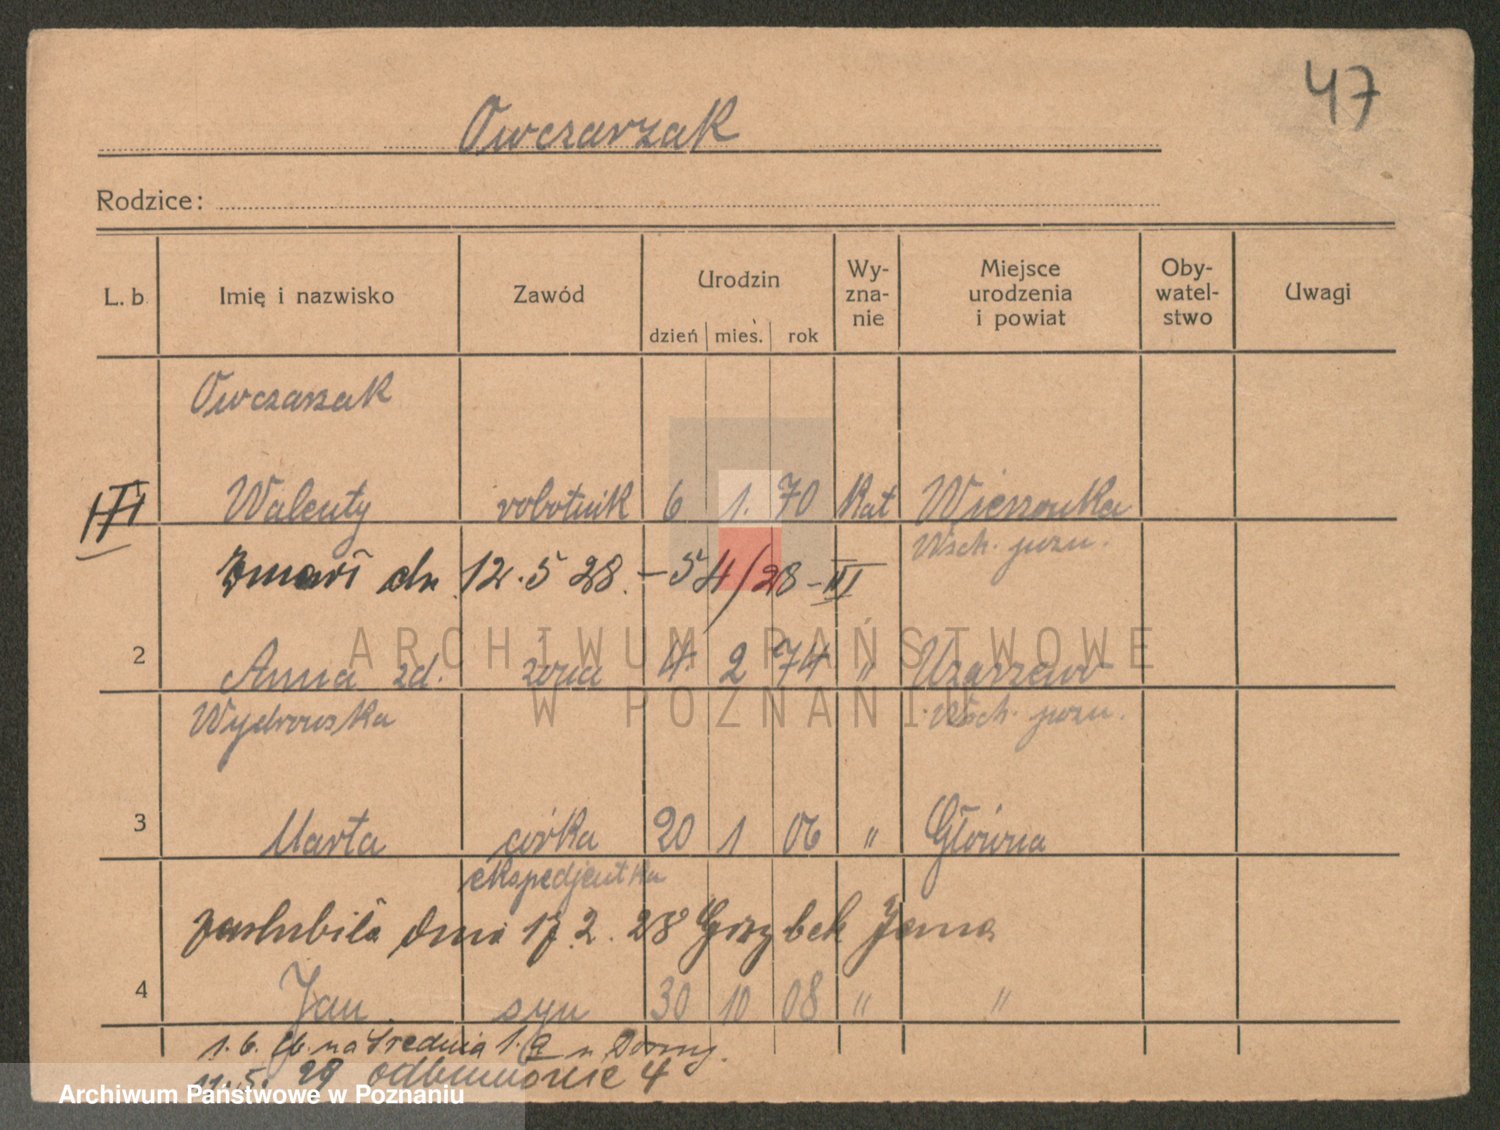 47
Owczarzak
Rodzice:
L. b. Imię i nazwisko Zawód Urodzin dzień mies. rok Wy-zna-nie Miejsce urodzenia i powiat Oby-watel-stwo Uwagi
Owczarzak
III Walenty robotnik 6 1. 70 Kat Wierzonka
Wsch. pozn.
Zmarł dn. 12.5 28. – 54/28 – III
2 Anna zd. żona 4. 2 74 " Uzarzewo
Wydrowska Wsch. pozn.
3 Marta córka 20 1 06 " Główna
ekspedjentka
zaślubiła dnia 17.2.28 Grzybek Jana
4 Jan syn 30 10 08 " "
na Średnia
11.5. 29 4
ARCHIWUM PAŃSTWOWE
W POZNANIU
Archiwum Państwowe w Poznaniu